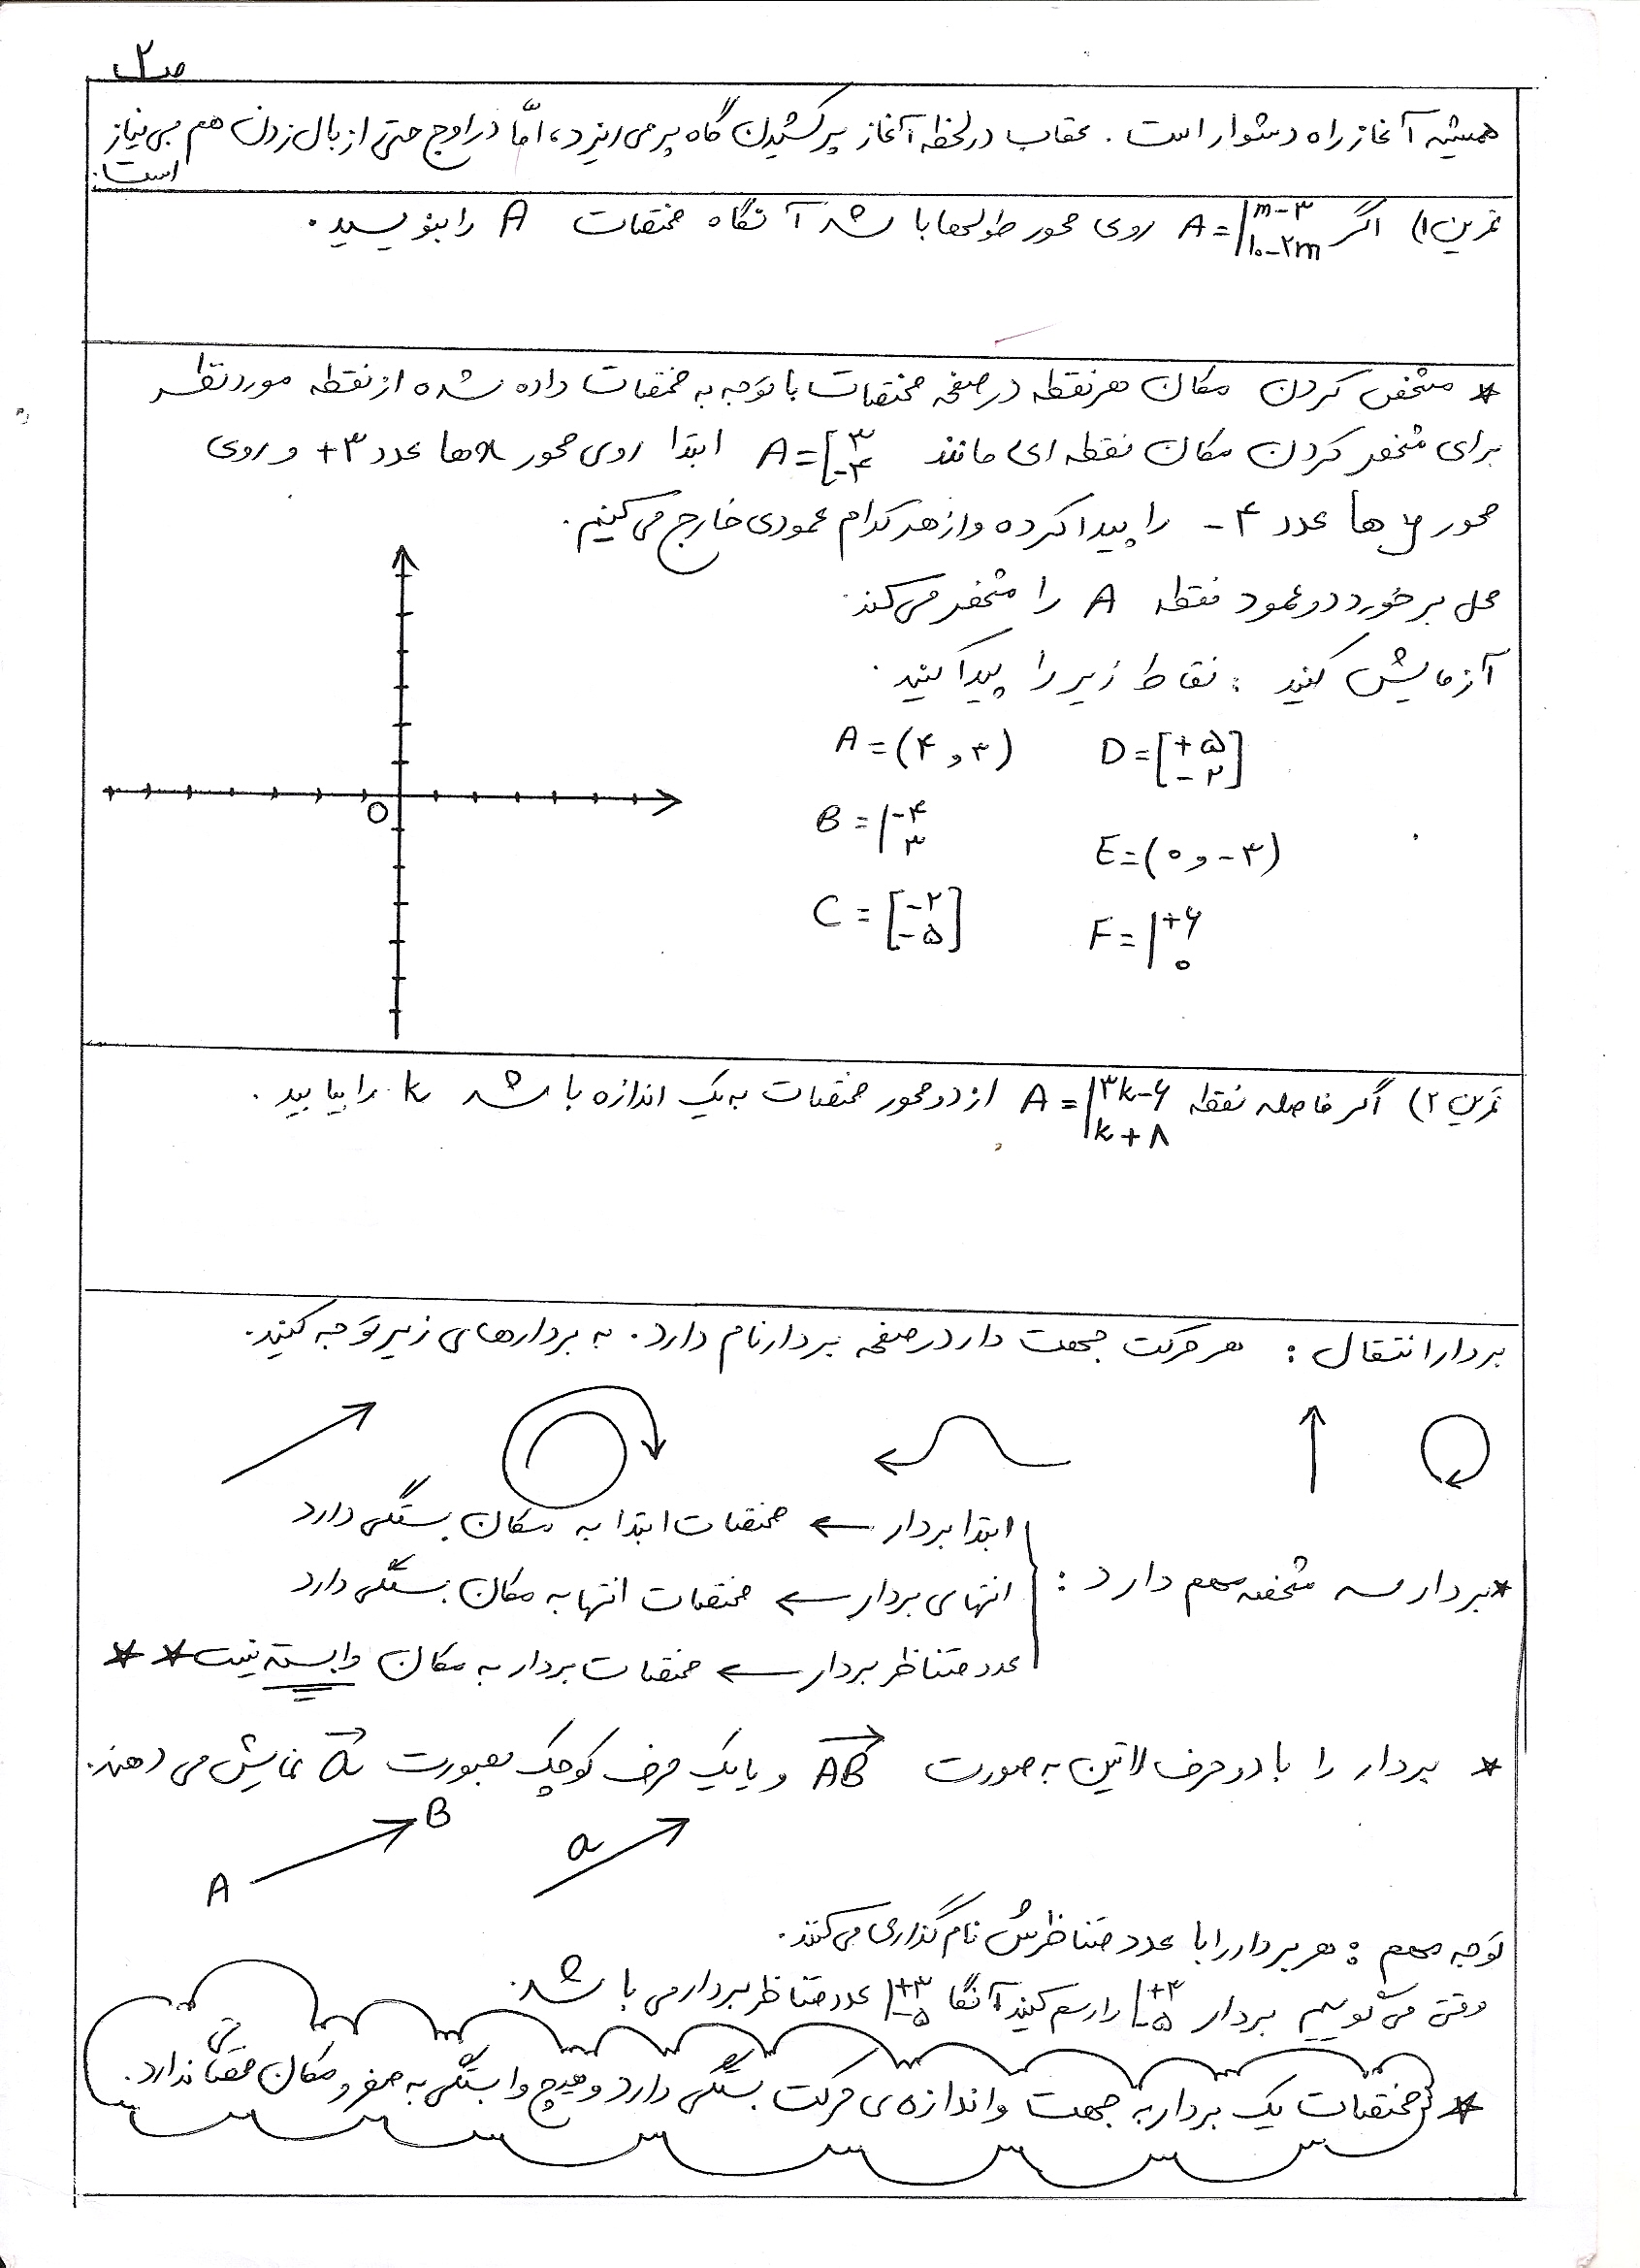 ص۲
همیشه آغاز راه دشوار است. عقاب در لحظه آغاز پر کشیدن گاه پر می ریزد، امّا در اوج حتی از بال زدن هم بی نیاز
است.
تمرین ۱) اگر A = |m-۳ ۱۰-۲m روی محور طولها باشد آنگاه مختصات A را بنویسید.
* مشخص کردن مکان هر نقطه در صفحه مختصات با توجه به مختصات داده شده از نقطه مورد نظر
برای مشخص کردن مکان نقطه ای مانند A = [۳ -۴ ابتدا روی محور x ها عدد ۳+ و روی
محور y ها عدد ۴- را پیدا کرده و از هر کدام عمودی خارج می کنیم.
محل برخورد دو عمود نقطه A را مشخص می کند.
آزمایش کنید: نقاط زیر را پیدا کنید.
A = (۴ , ۳) D = [+۵ -۲]
B = |-۴ ۳ E = (۰ , -۳)
C = [-۲ -۵] F = |+۶ ۰
O
تمرین ۲) اگر فاصله نقطه A = |۳k-۶ k+۸ از دو محور مختصات به یک اندازه باشد k را بیابید.
بردار انتقال: هر حرکت جهت دار در صفحه بردار نام دارد. به بردارهای زیر توجه کنید.
ابتدا بردار ← مختصات ابتدا به مکان بستگی دارد
* بردار سه مشخصه مهم دارد: انتهای بردار ← مختصات انتها به مکان بستگی دارد
عدد متناظر بردار ← مختصات بردار به مکان وابسته نیست * *
* بردار را با دو حرف لاتین به صورت AB و یا یک حرف کوچک بصورت a نمایش می دهند.
A B a
توجه مهم: هر بردار را با عدد متناظرش نام گذاری می کنند.
وقتی می گوییم بردار |+۳ -۵ را رسم کنید آنگا |+۳ -۵ عدد متناظر بردار می باشد.
* مختصات یک بردار به جهت و اندازه ی حرکت بستگی دارد و هیچ وابستگی به صفر و مکان مختصاتی ندارد.